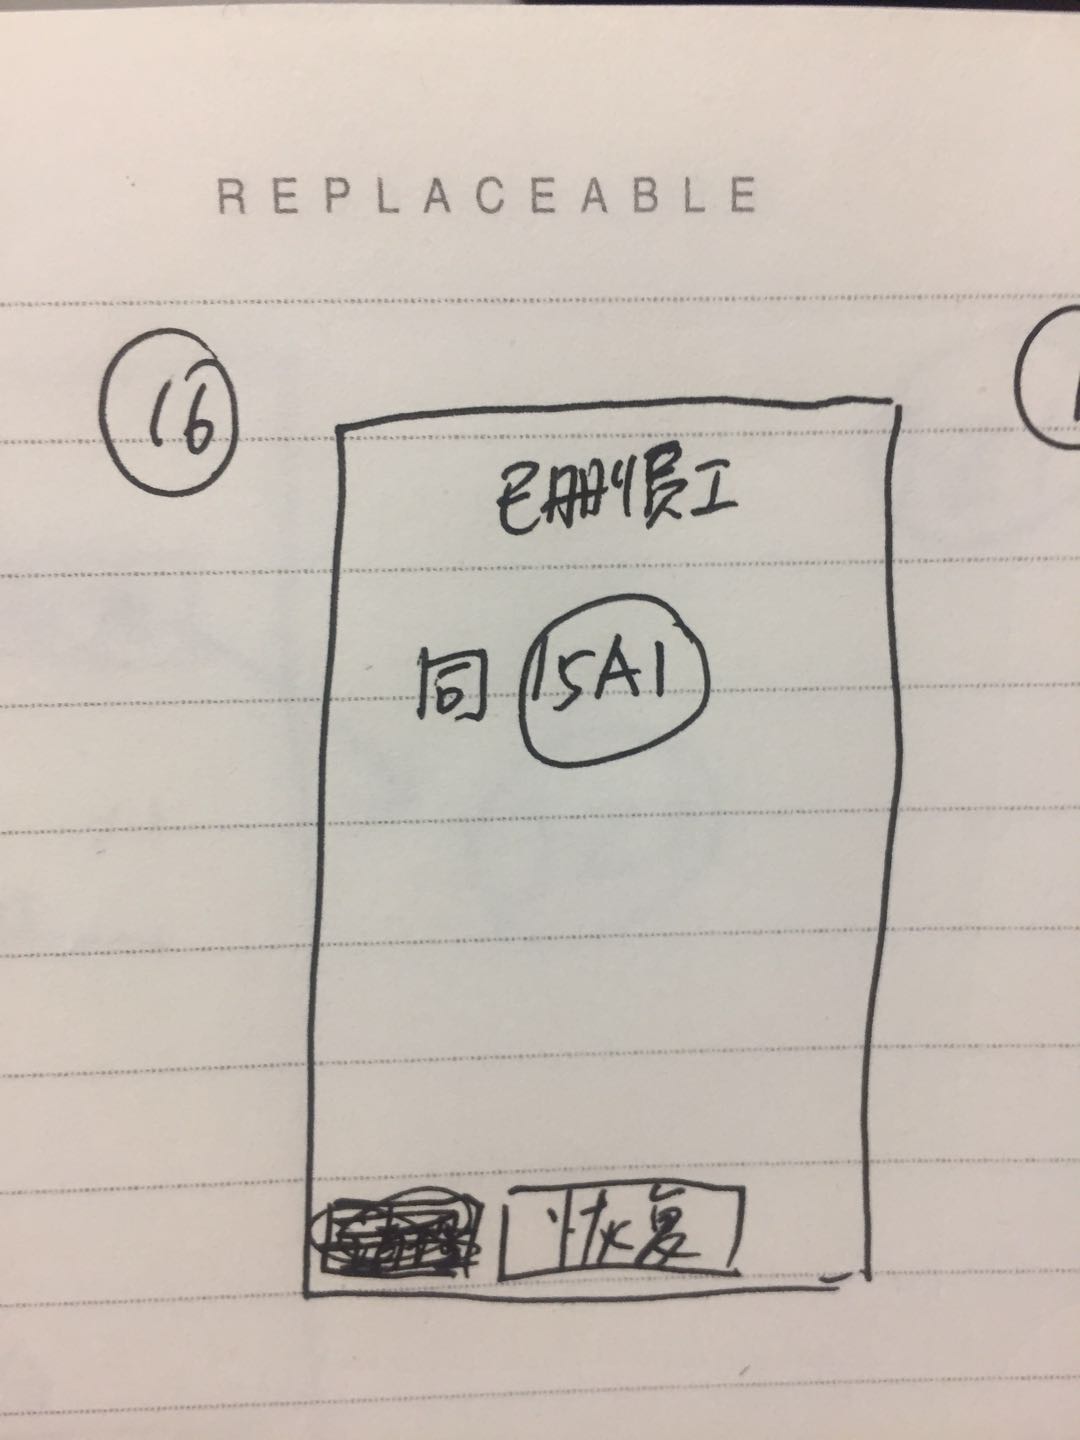 REPLACEABLE
16
已删员工
同 15A1
恢复